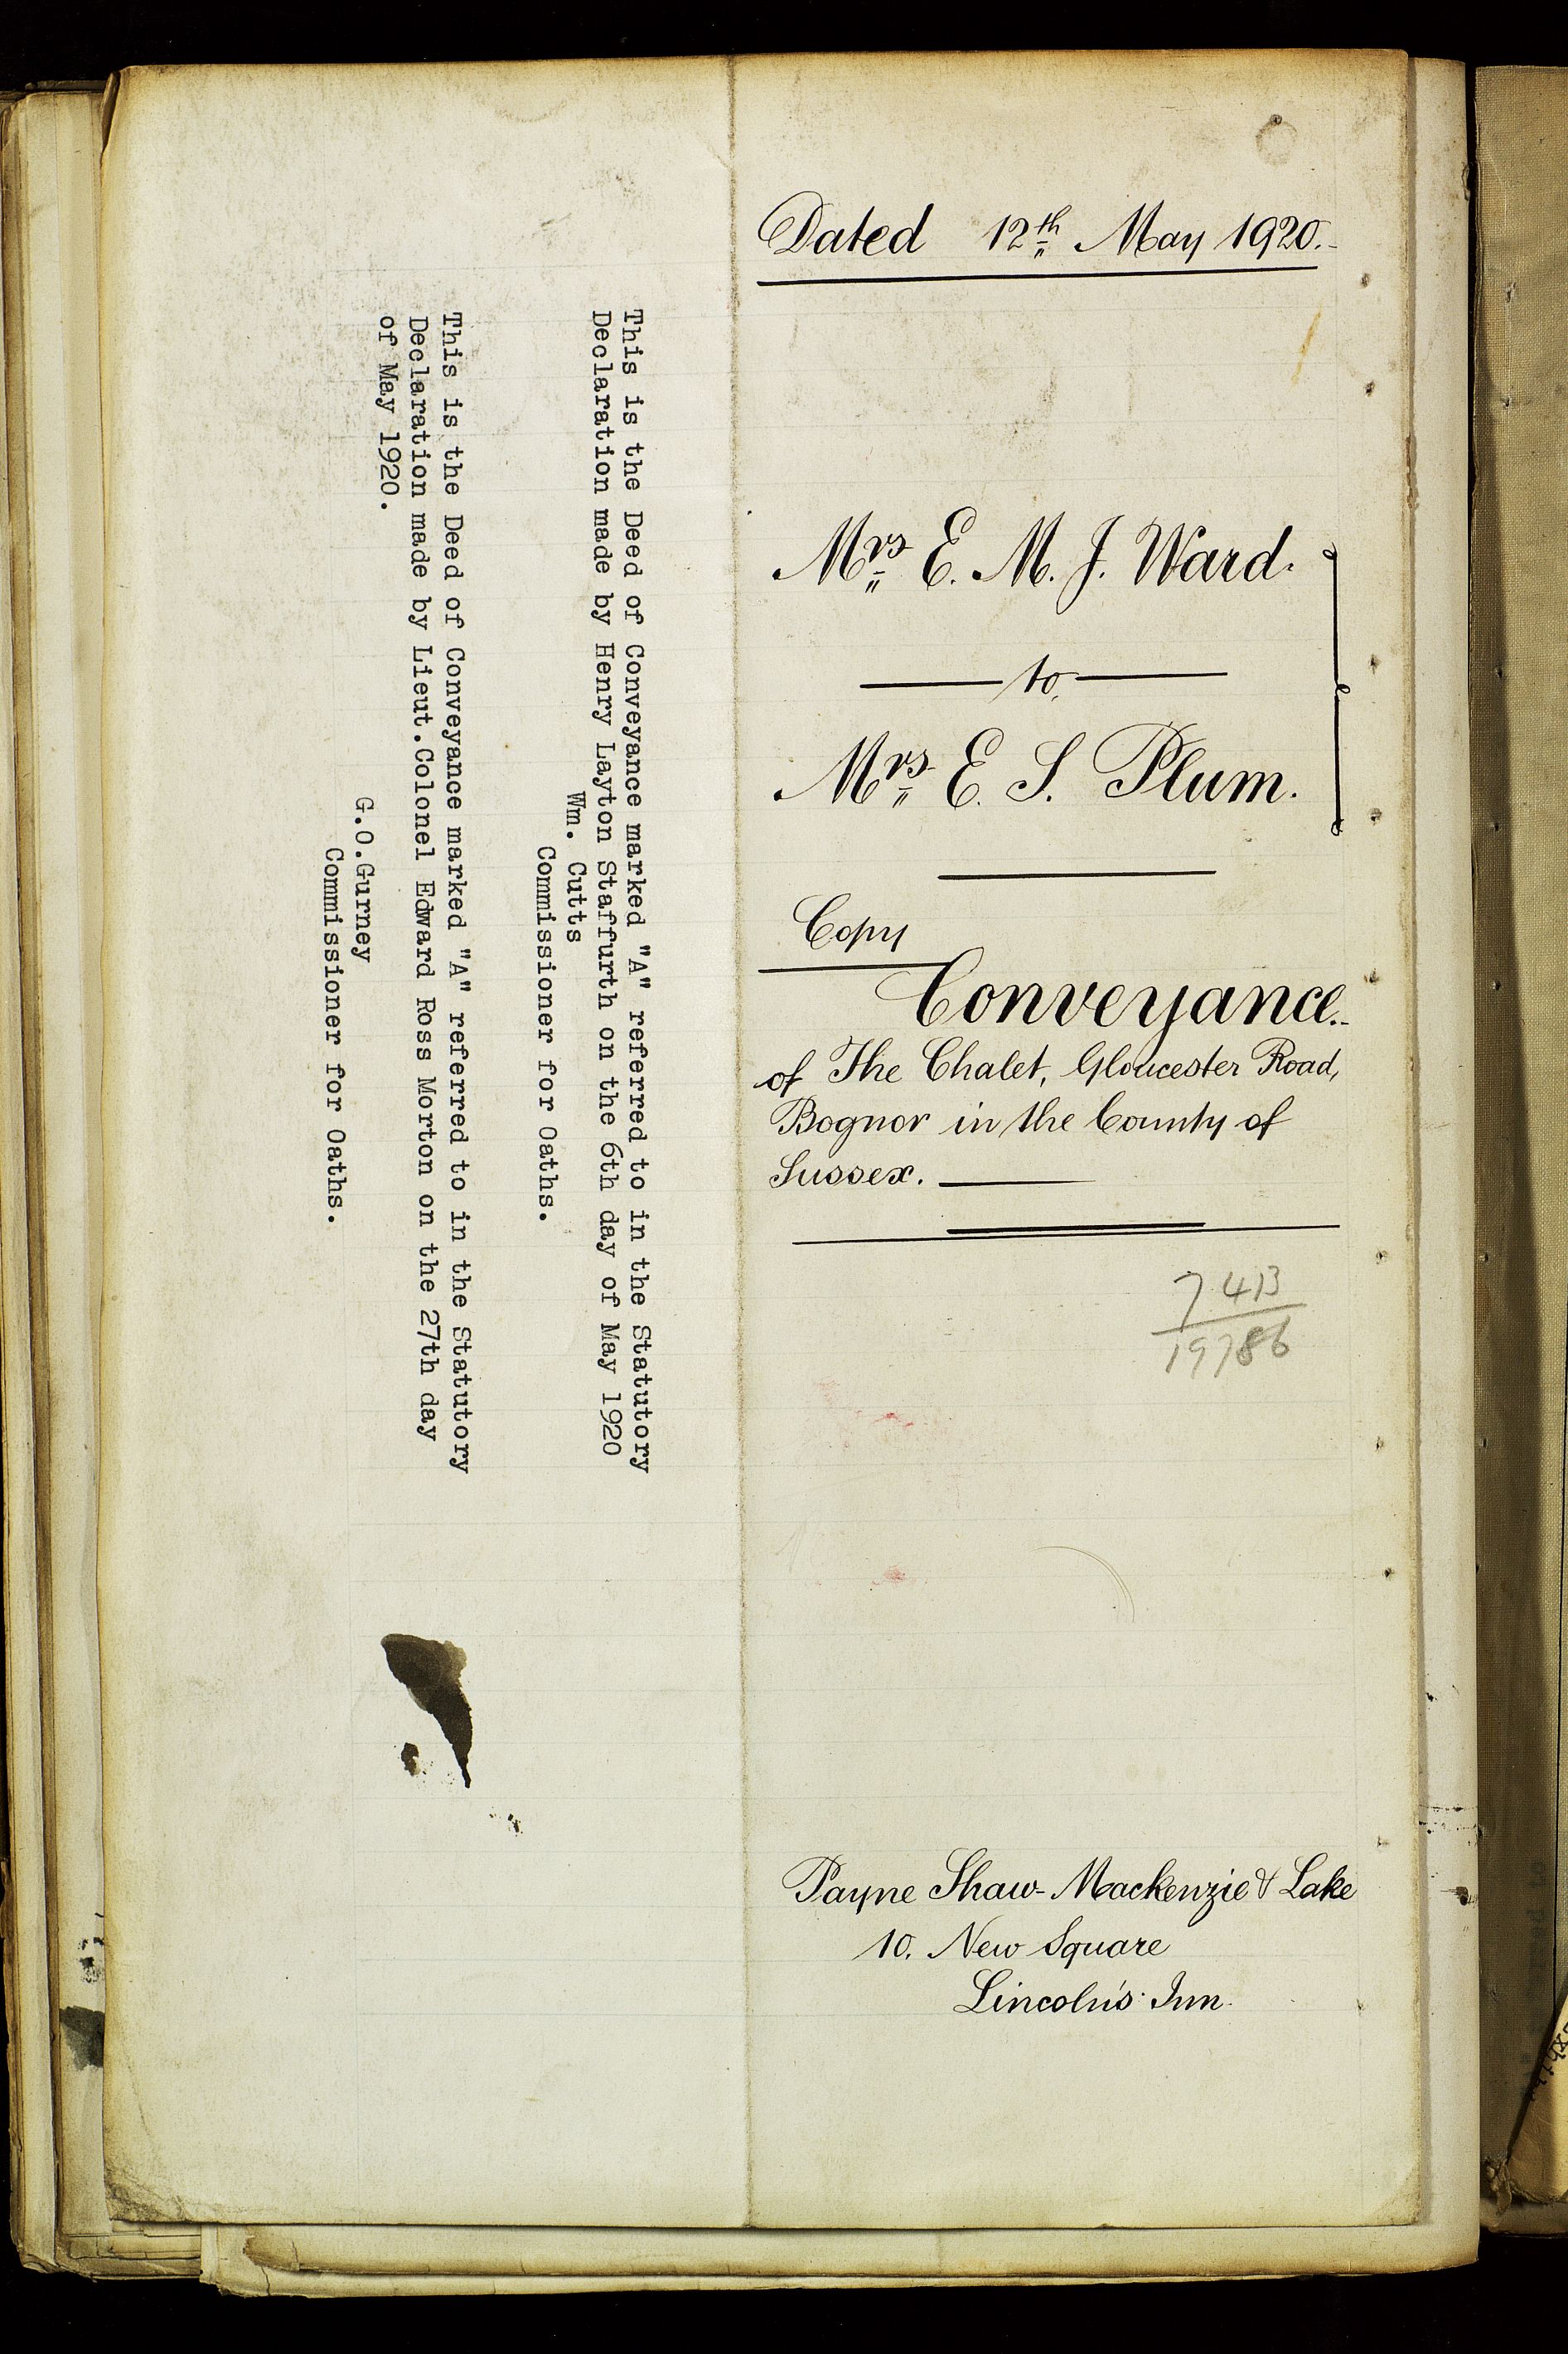 Dated 12th May 1920.
Mrs E. M. J. Ward.
to
Mrs E. S. Plum.
Copy
Conveyance.
of The Chalet, Gloucester Road,
Bognor in the County of
Sussex.
7413
19786
Payne Shaw-Mackenzie & Lake
10. New Square
Lincoln's Inn.
This is the Deed of Conveyance marked "A" referred to in the Statutory
Declaration made by Henry Layton Staffurth on the 6th day of May 1920
Wm. Cutts
Commissioner for Oaths.
This is the Deed of Conveyance marked "A" referred to in the Statutory
Declaration made by Lieut.Colonel Edward Ross Morton on the 27th day
of May 1920.
G.O.Gurney
Commissioner for Oaths.